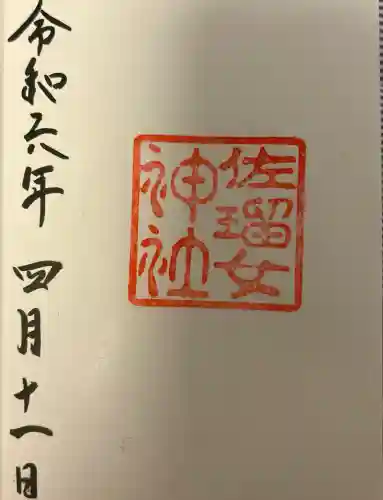 令和六年 四月十一日
佐瑠女
神社